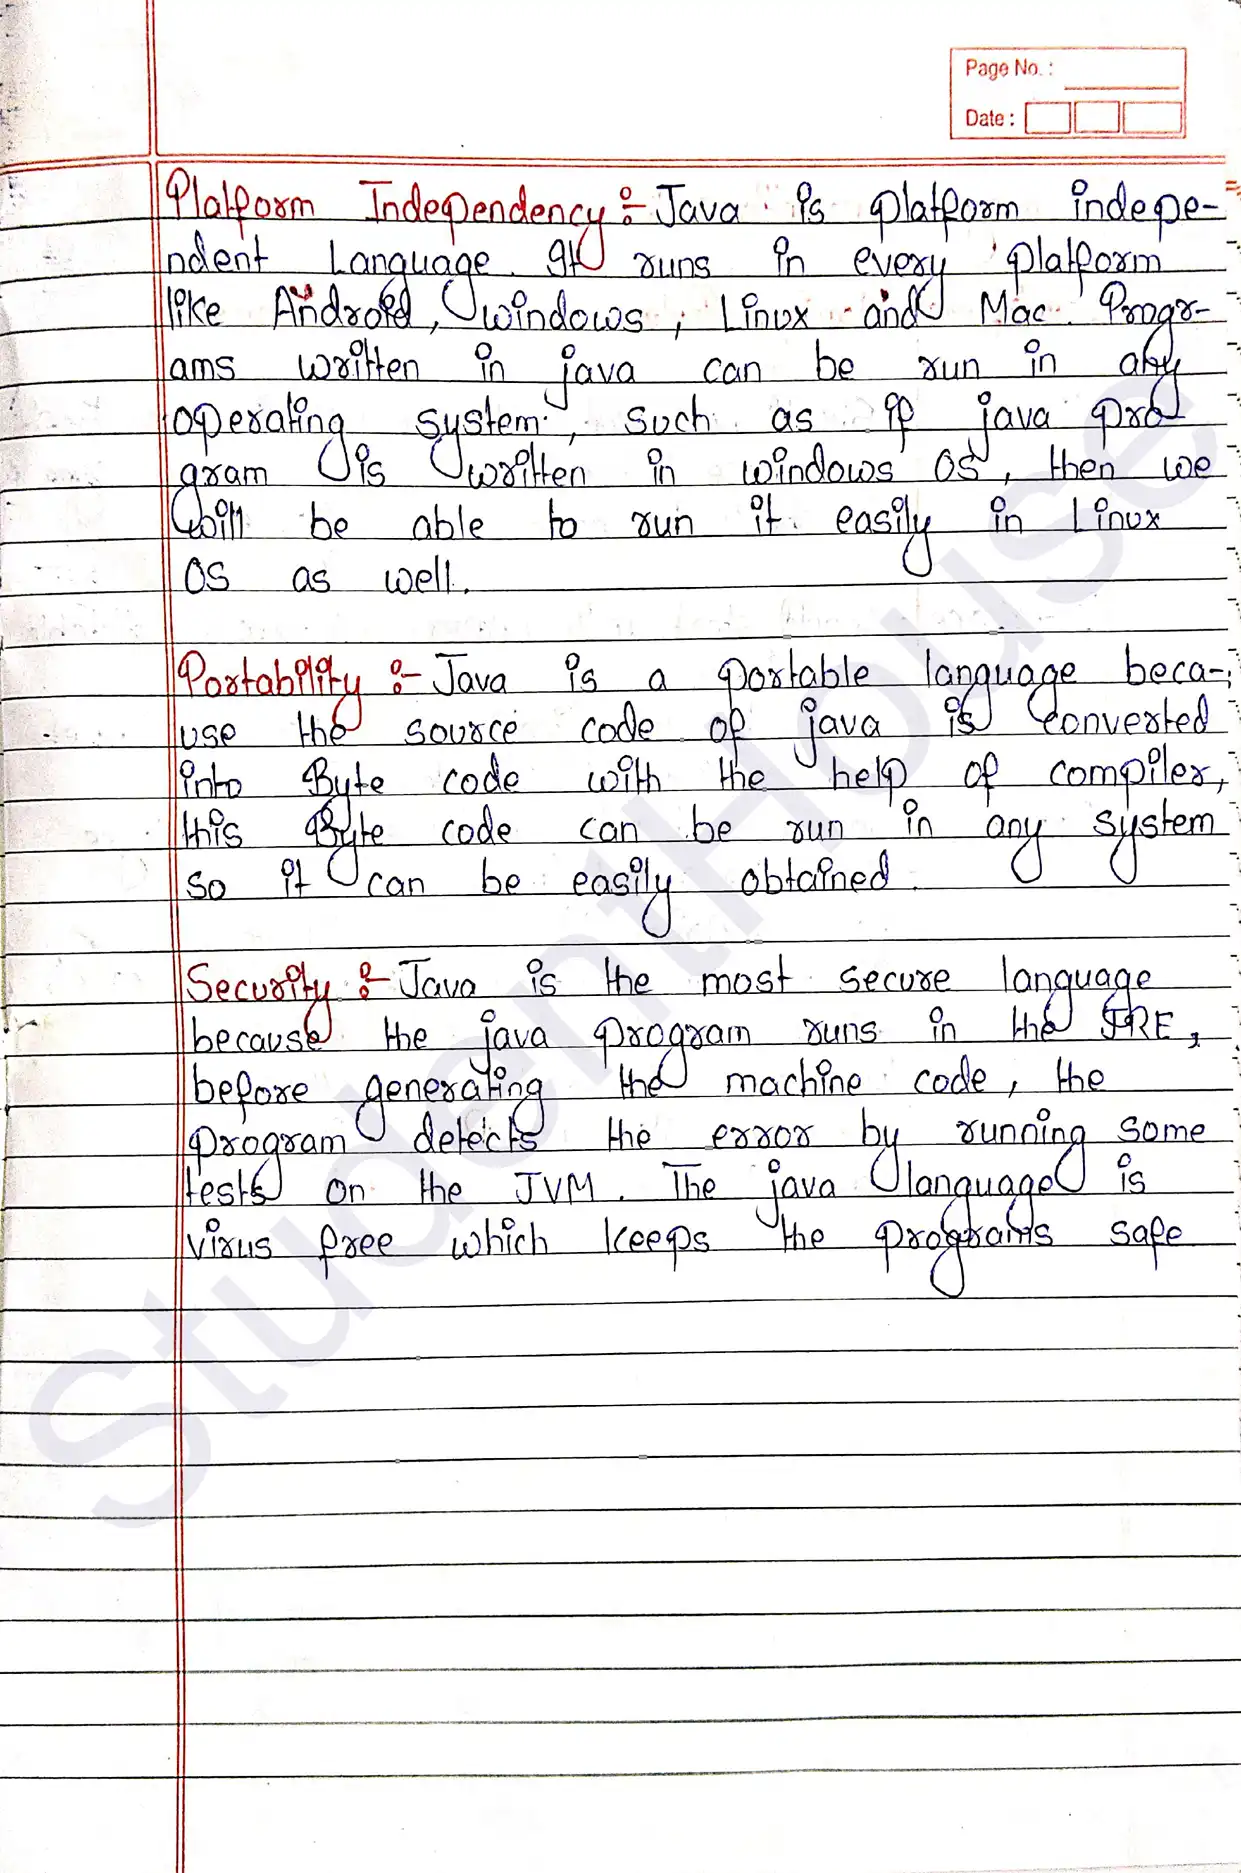 Page No. :
Date :
Platform Independency :- Java is platform indepe-
ndent Language. It runs in every platform
like Android, windows, Linux and Mac. Progr-
ams written in java can be run in any
operating system, such as if java pro-
gram is written in windows OS, then we
will be able to run it easily in Linux
OS as well.
Portability :- Java is a portable language beca-
use the source code of java is converted
into Byte code with the help of compiler,
this Byte code can be run in any system
so it can be easily obtained.
Security :- Java is the most secure language
because the java program runs in the JRE,
before generating the machine code, the
program detects the error by running some
tests on the JVM. The java language is
virus free which keeps the programs safe
StudentHouse